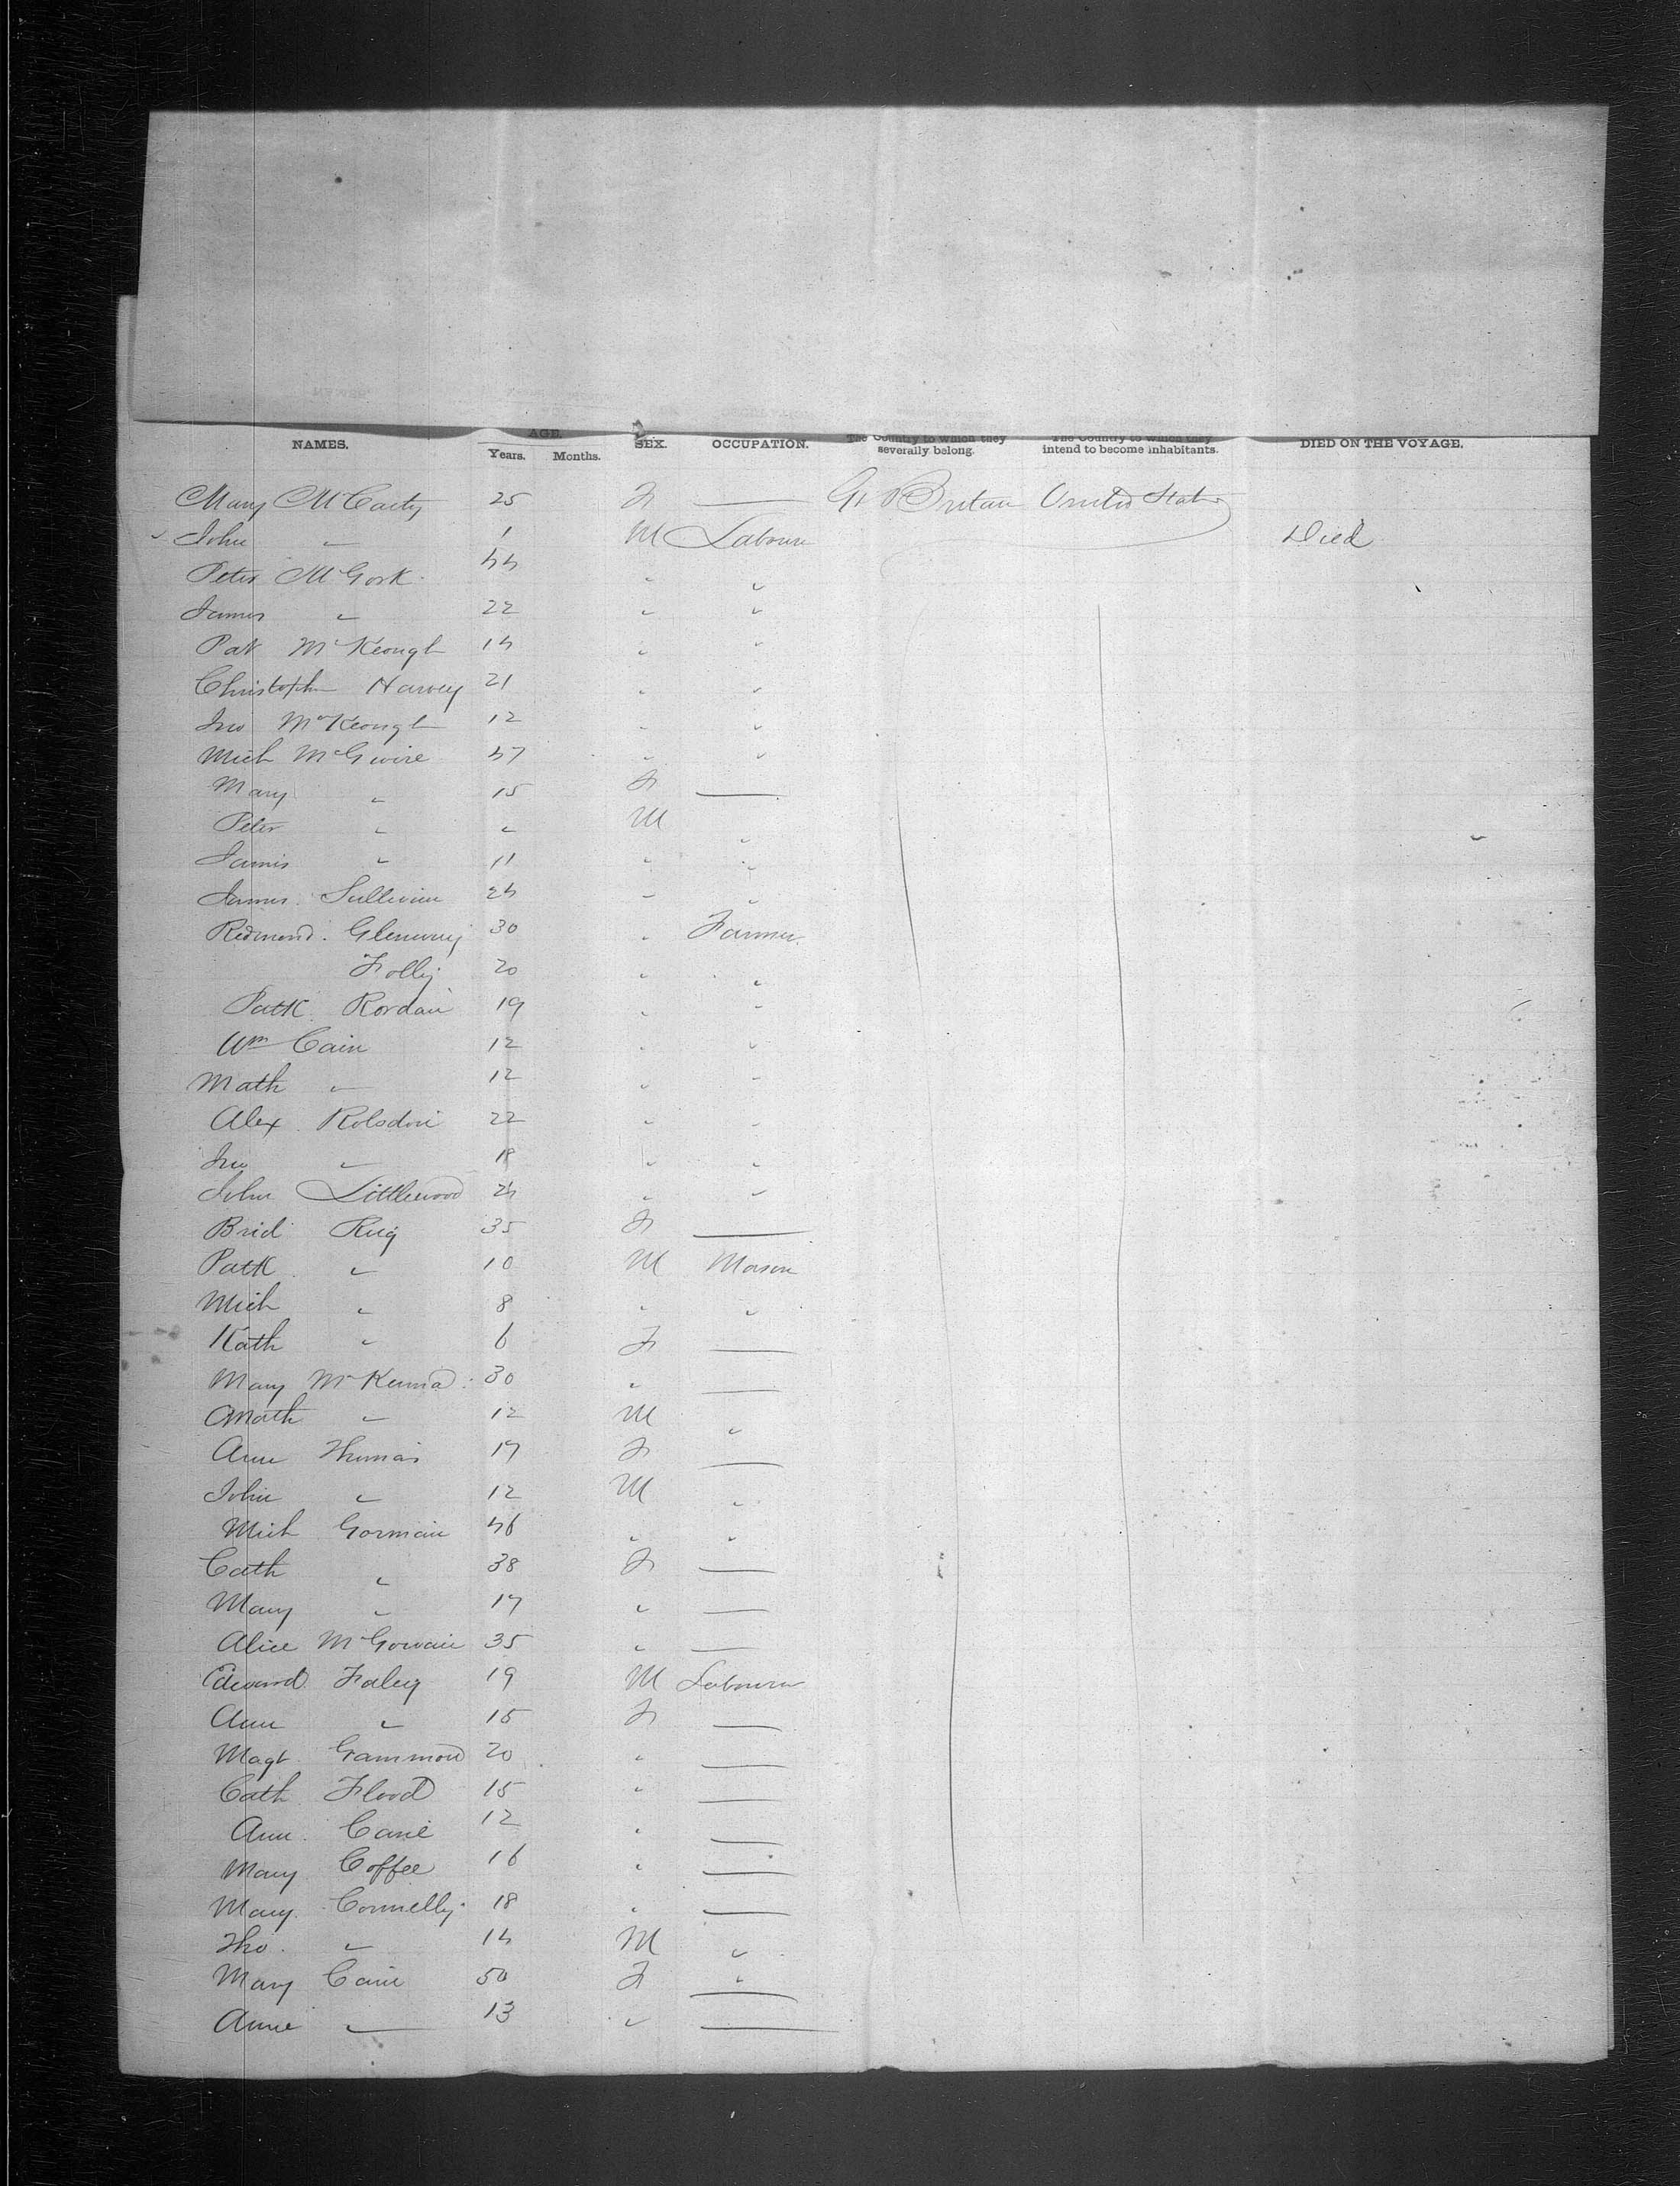 NAMES. AGE. Years. Months. SEX. OCCUPATION. The Country to which they severally belong. The Country to which they intend to become inhabitants. DIED ON THE VOYAGE.
Mary McCarty 25 F — Gt Britain United States
John " 1 M Labourer Died
Peter McGork 44 " "
James " 22 " "
Pat McKeough 14 " "
Christopher Harvey 21 " "
Jno McKeough 12 " "
Mich McGwire 47 " "
Mary " 15 F —
Peter " " M "
James " 11 " "
James Sullivan 24 " "
Redmond 30 " Farmer
Folly 20 " "
Patk Rordan 19 " "
Wm Cain 12 " "
Math " 12 " "
Alex 22 " "
Jno " 18 " "
John Littlewood 24 " "
Brid 35 F —
Patk " 10 M Mason
Mich " 8 " "
Kath " 6 F —
Mary McKenna 30 " —
Math " 12 M "
Ann Thomas 17 F —
John " 12 M "
Mich Gorman 46 " "
Cath " 38 F —
Mary " 17 " —
Alice McGowan 35 " —
Edward Faley 19 M Labourer
Ann " 15 F —
Magt Gammon 20 " —
Cath Flood 15 " —
Ann Cane 12 " —
Mary Coffee 16 " —
Mary Connelly 18 " —
Tho. " 14 M "
Mary Cain 50 F —
Anne " 13 " —